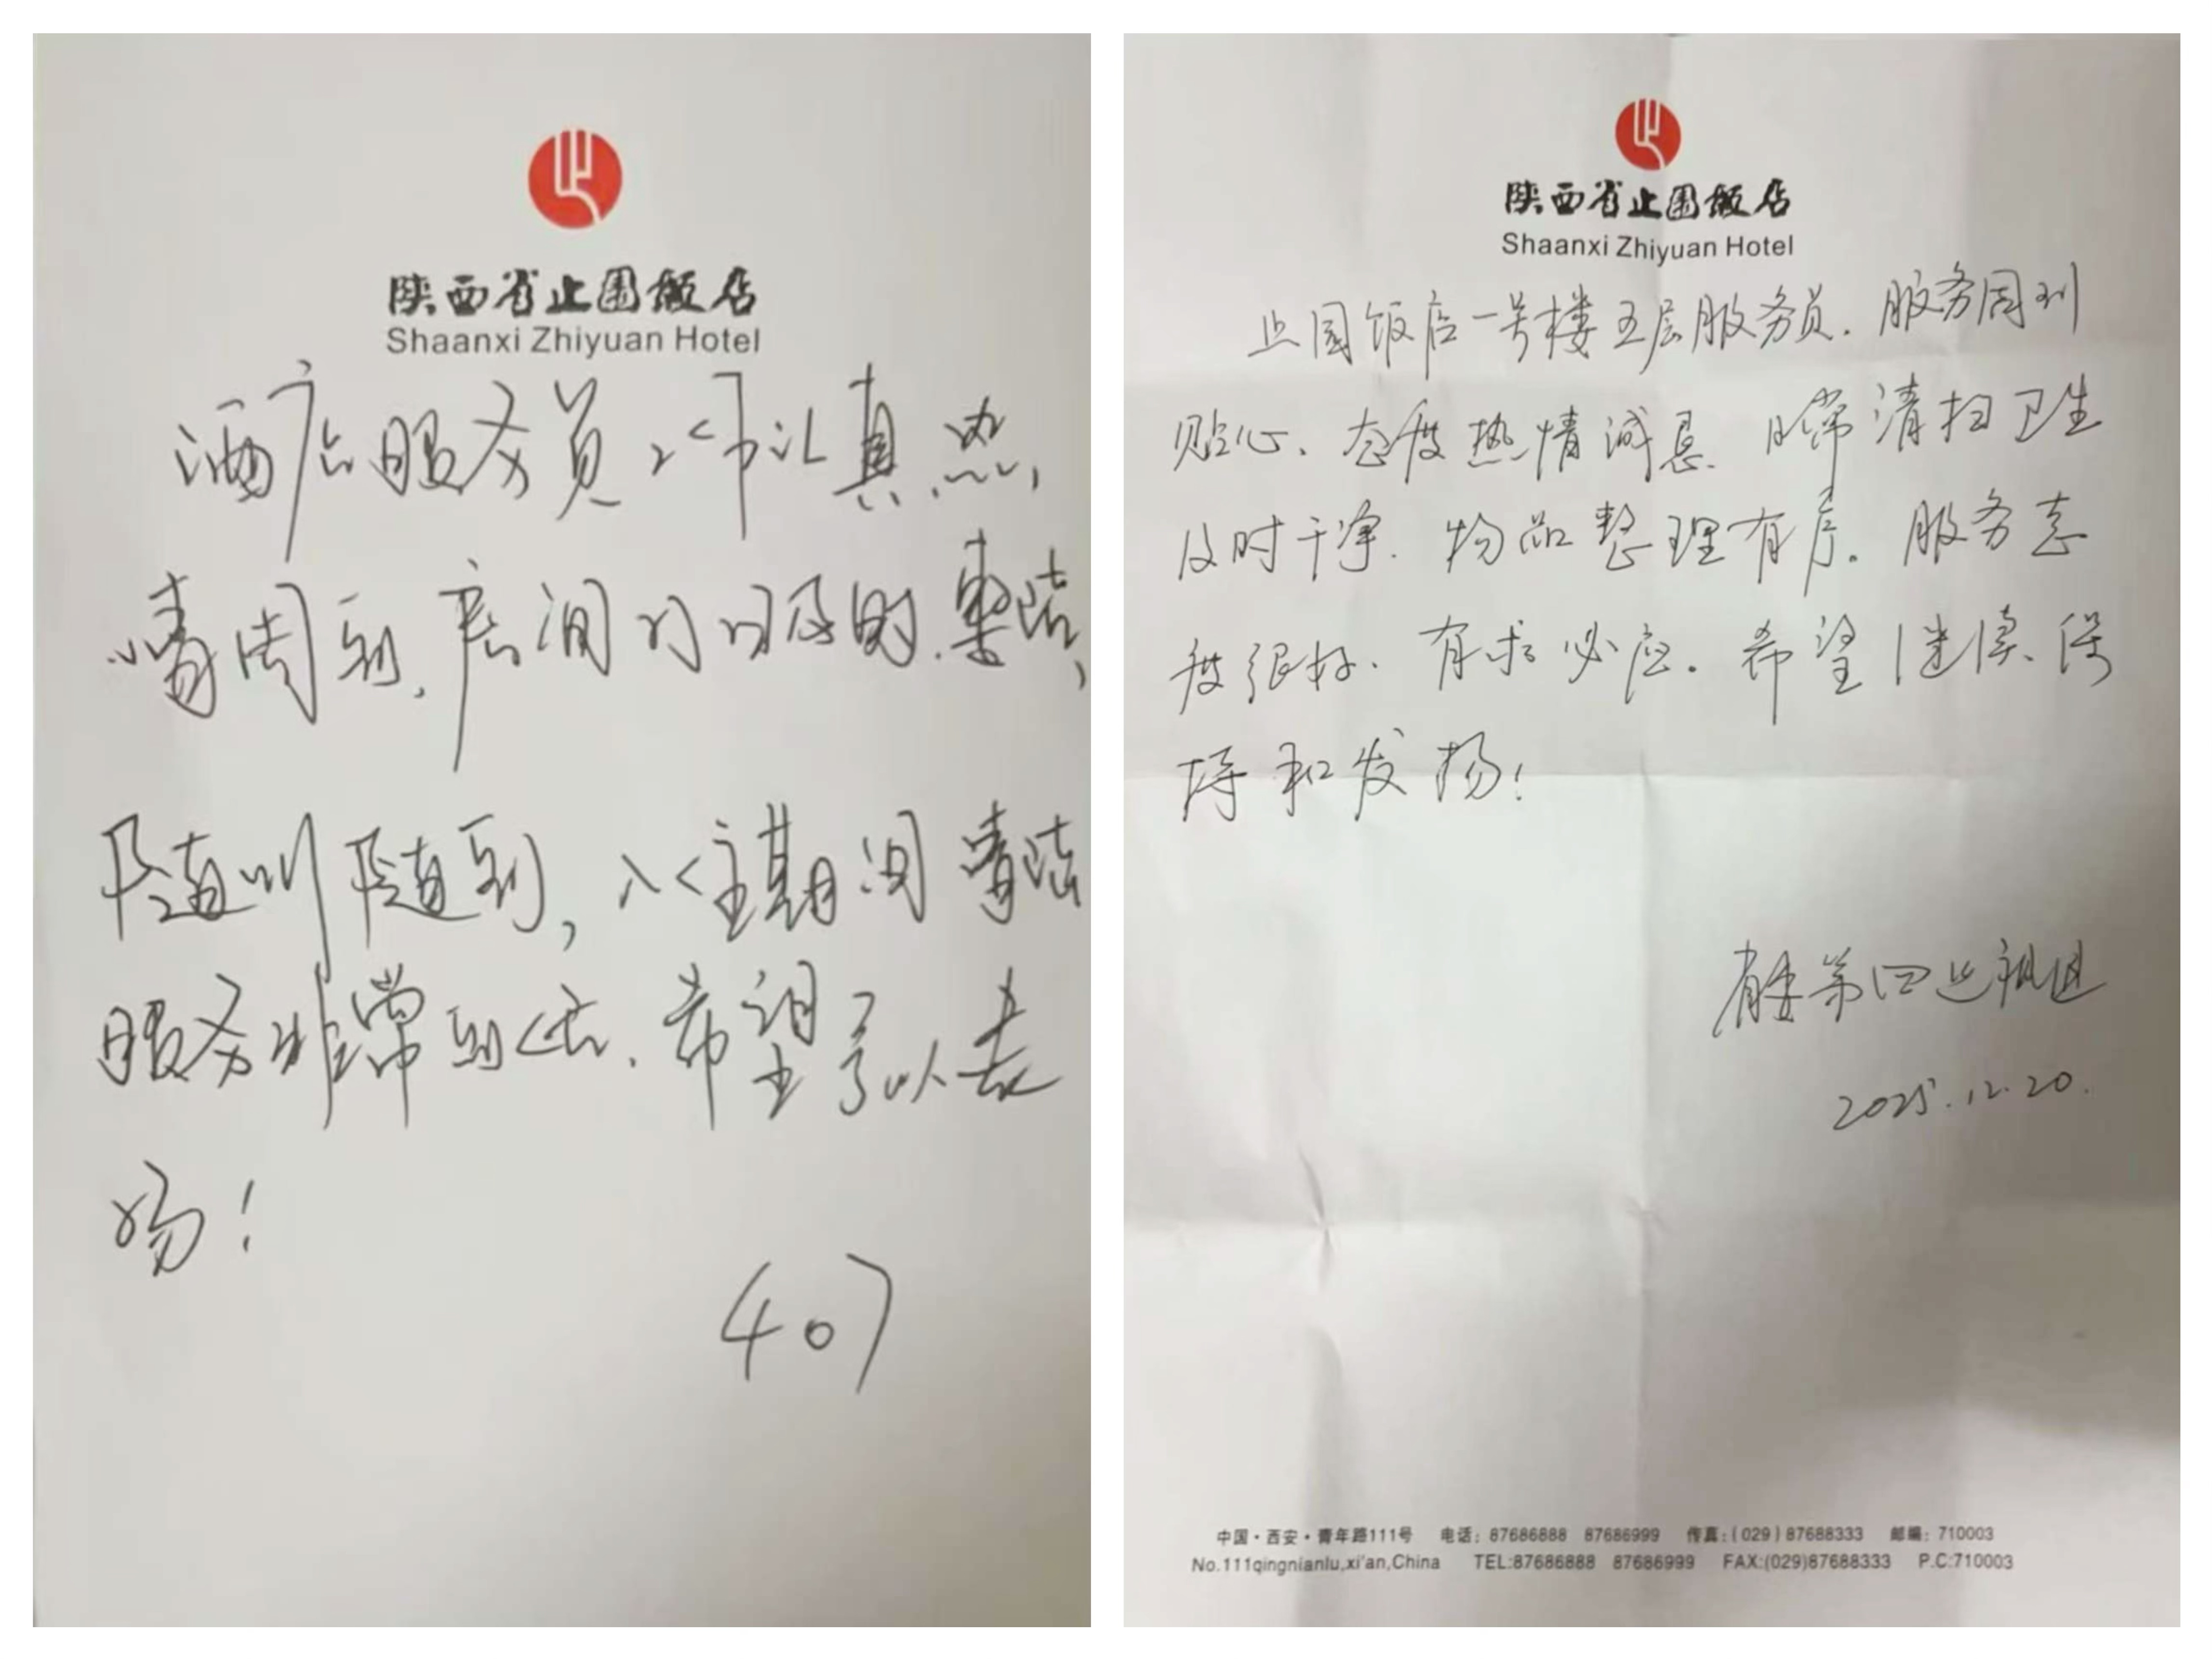 陕西省止园饭店
Shaanxi Zhiyuan Hotel
酒店服务员工作认真、热
情周到，房间打扫及时、整洁，
随叫随到，入住期间
服务非常到位，希望予以表
扬！
407
陕西省止园饭店
Shaanxi Zhiyuan Hotel
止园饭店一号楼五层服务员，服务周到
贴心、态度热情诚恳、日常清扫卫生
及时干净，物品整理有序。服务态
度很好，有求必应。希望继续保
持和发扬！
省委第四巡视组
2025.12.20.
中国·西安·青年路111号 电话：87686888 87686999 传真：(029)87688333 邮编：710003
No.111qingnianlu,xi'an,China TEL:87686888 87686999 FAX:(029)87688333 P.C:710003